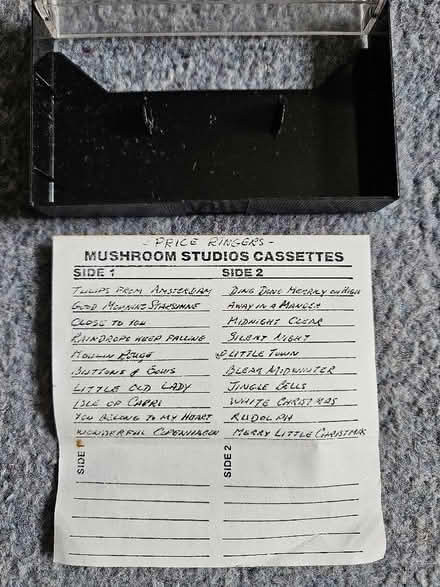 - PRICE RINGERS -
MUSHROOM STUDIOS CASSETTES
SIDE 1
TULIPS FROM AMSTERDAM
GOOD MORNING STARSHINE
CLOSE TO YOU
RAINDROPS KEEP FALLING
MOULIN ROUGE
BUTTONS & BOWS
LITTLE OLD LADY
ISLE OF CAPRI
YOU BELONG TO MY HEART
WONDERFUL COPENHAGEN
SIDE 2
DING DONG MERRILY ON HIGH
AWAY IN A MANGER
MIDNIGHT CLEAR
SILENT NIGHT
O LITTLE TOWN
BLEAK MIDWINTER
JINGLE BELLS
WHITE CHRISTMAS
RUDOLPH
MERRY LITTLE CHRISTMAS
SIDE 1
SIDE 2